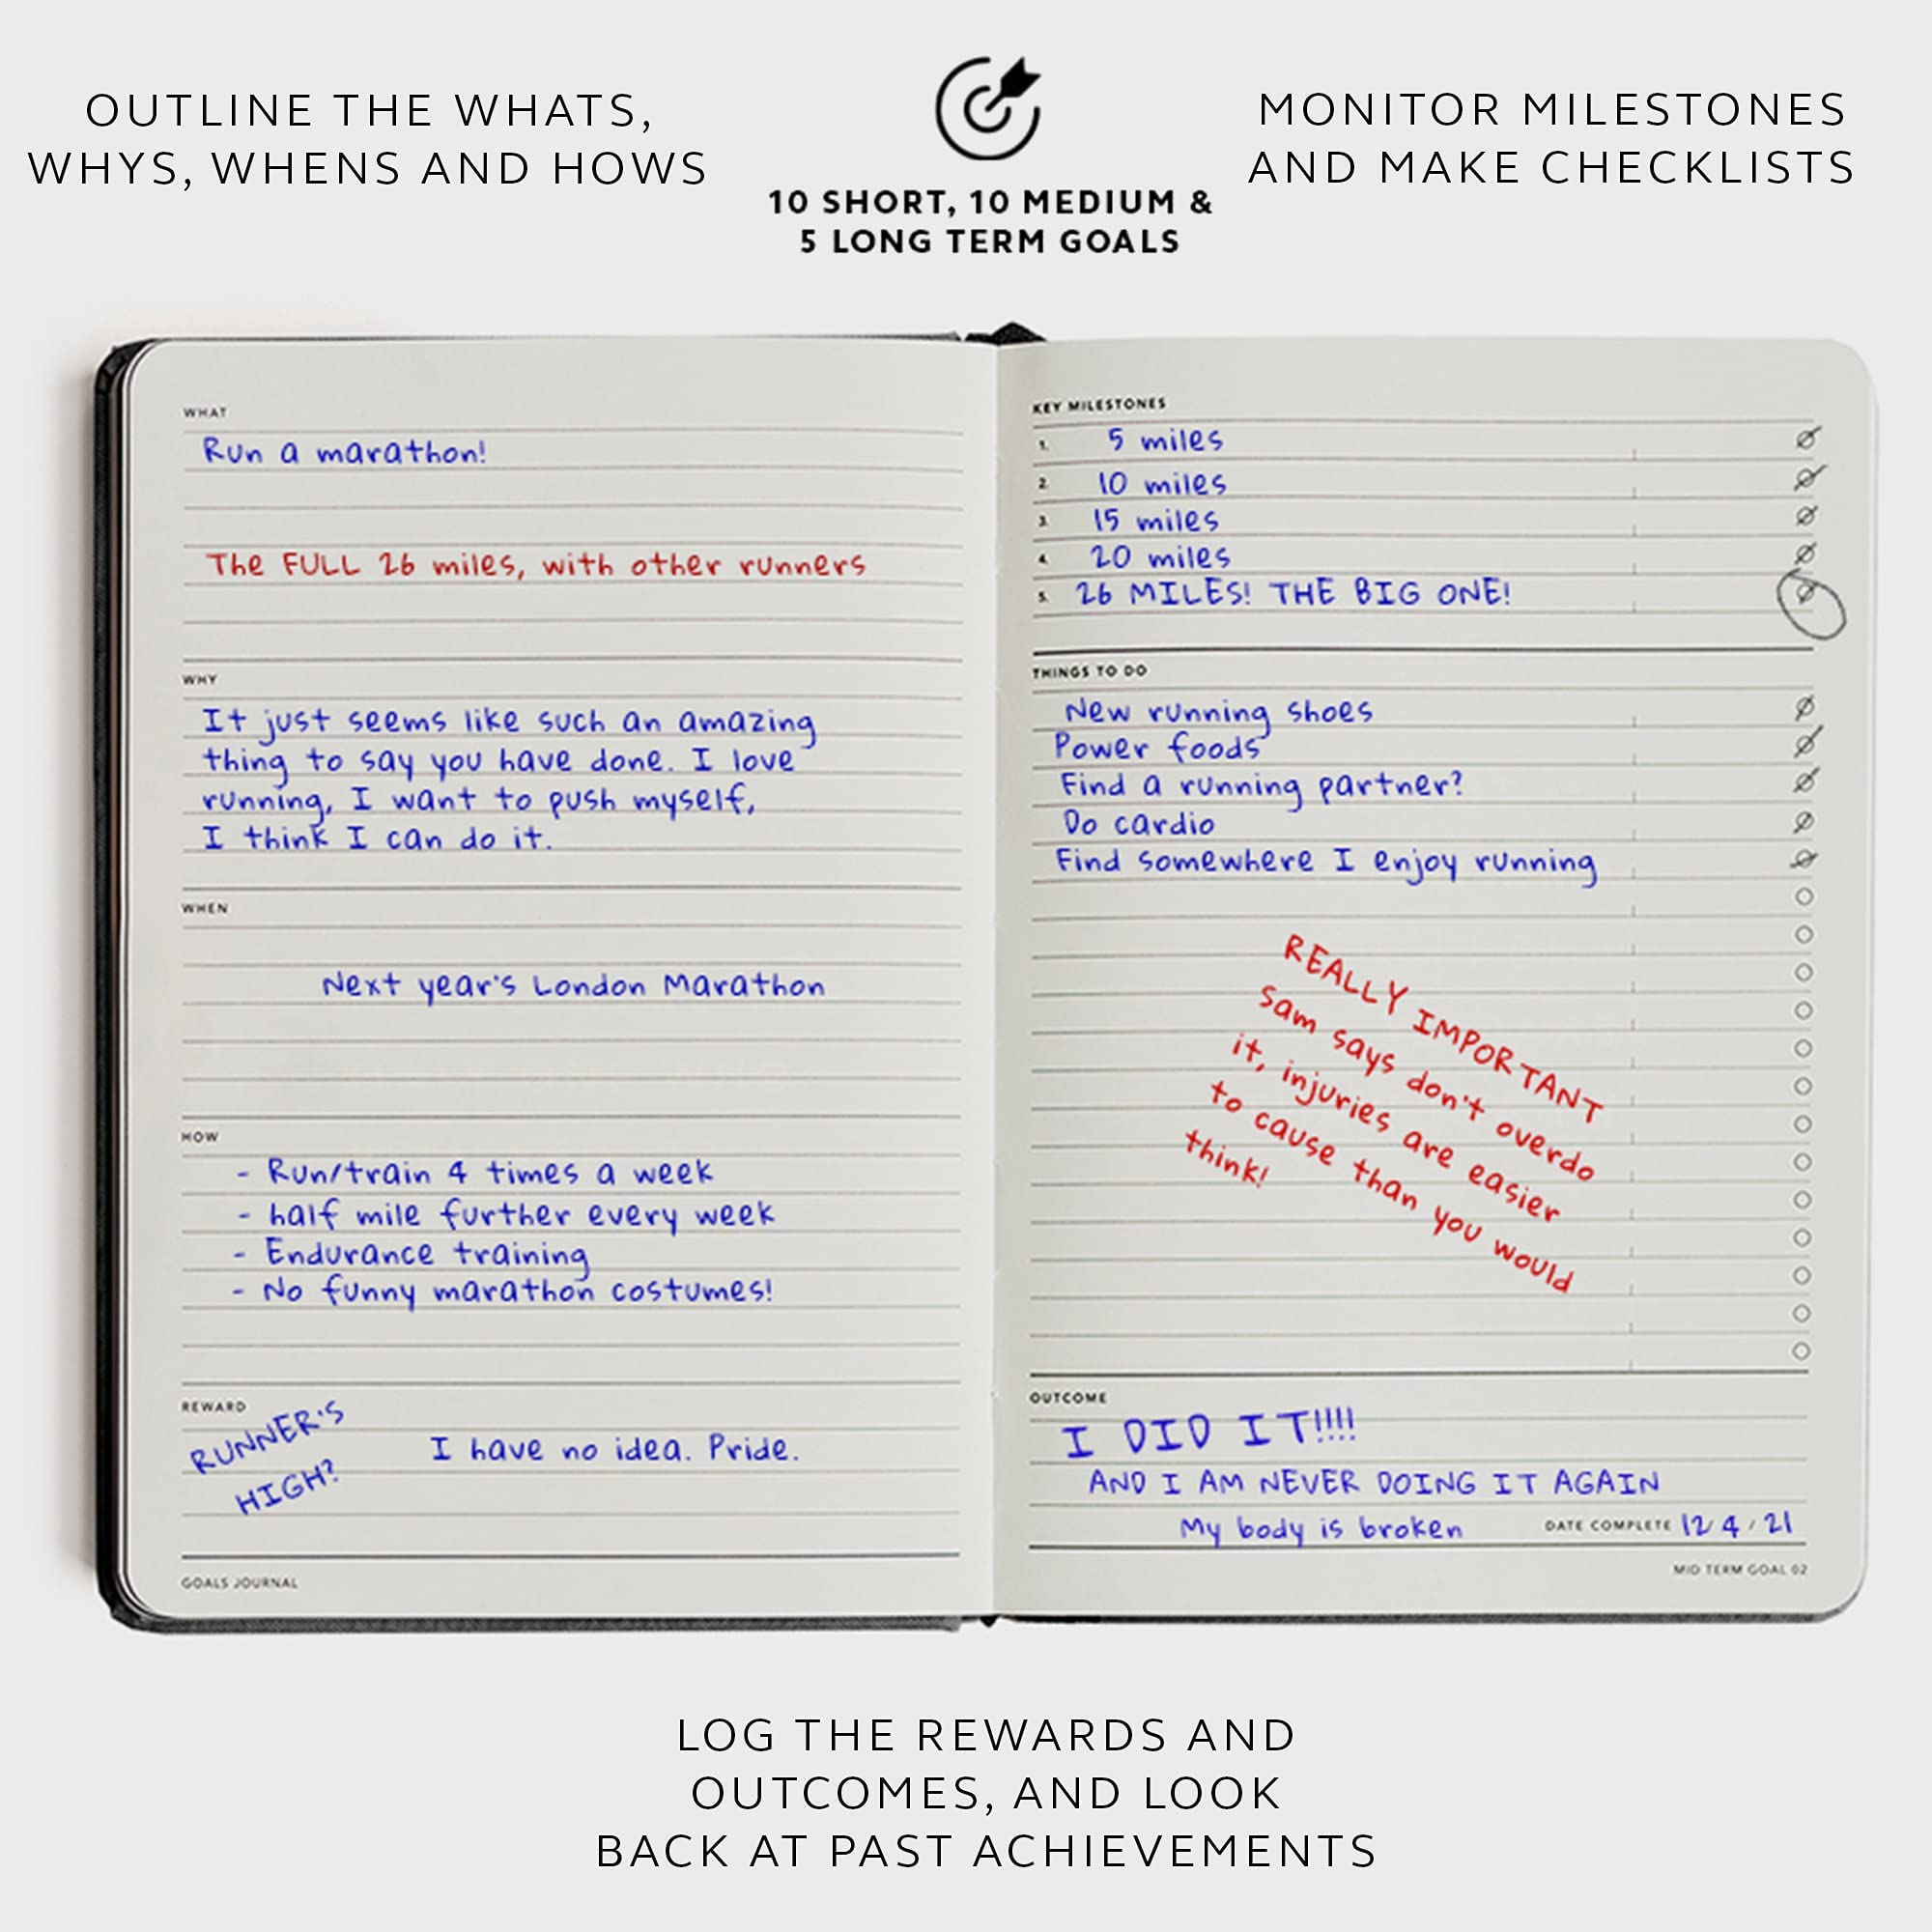 OUTLINE THE WHATS,
WHYS, WHENS AND HOWS
10 SHORT, 10 MEDIUM &
5 LONG TERM GOALS
MONITOR MILESTONES
AND MAKE CHECKLISTS
WHAT
Run a marathon!
The FULL 26 miles, with other runners
WHY
It just seems like such an amazing
thing to say you have done. I love
running, I want to push myself,
I think I can do it.
WHEN
Next year's London Marathon
HOW
- Run/train 4 times a week
- half mile further every week
- Endurance training
- No funny marathon costumes!
REWARD
RUNNER'S
HIGH?
I have no idea. Pride.
GOALS JOURNAL
KEY MILESTONES
1. 5 miles
2. 10 miles
3. 15 miles
4. 20 miles
5. 26 MILES! THE BIG ONE!
THINGS TO DO
New running shoes
Power foods
Find a running partner?
Do cardio
Find somewhere I enjoy running
REALLY IMPORTANT
Sam says don't overdo
it, injuries are easier
to cause than you would
think!
OUTCOME
I DID IT!!!!
AND I AM NEVER DOING IT AGAIN
My body is broken
DATE COMPLETE 12/4/21
MID TERM GOAL 02
LOG THE REWARDS AND
OUTCOMES, AND LOOK
BACK AT PAST ACHIEVEMENTS